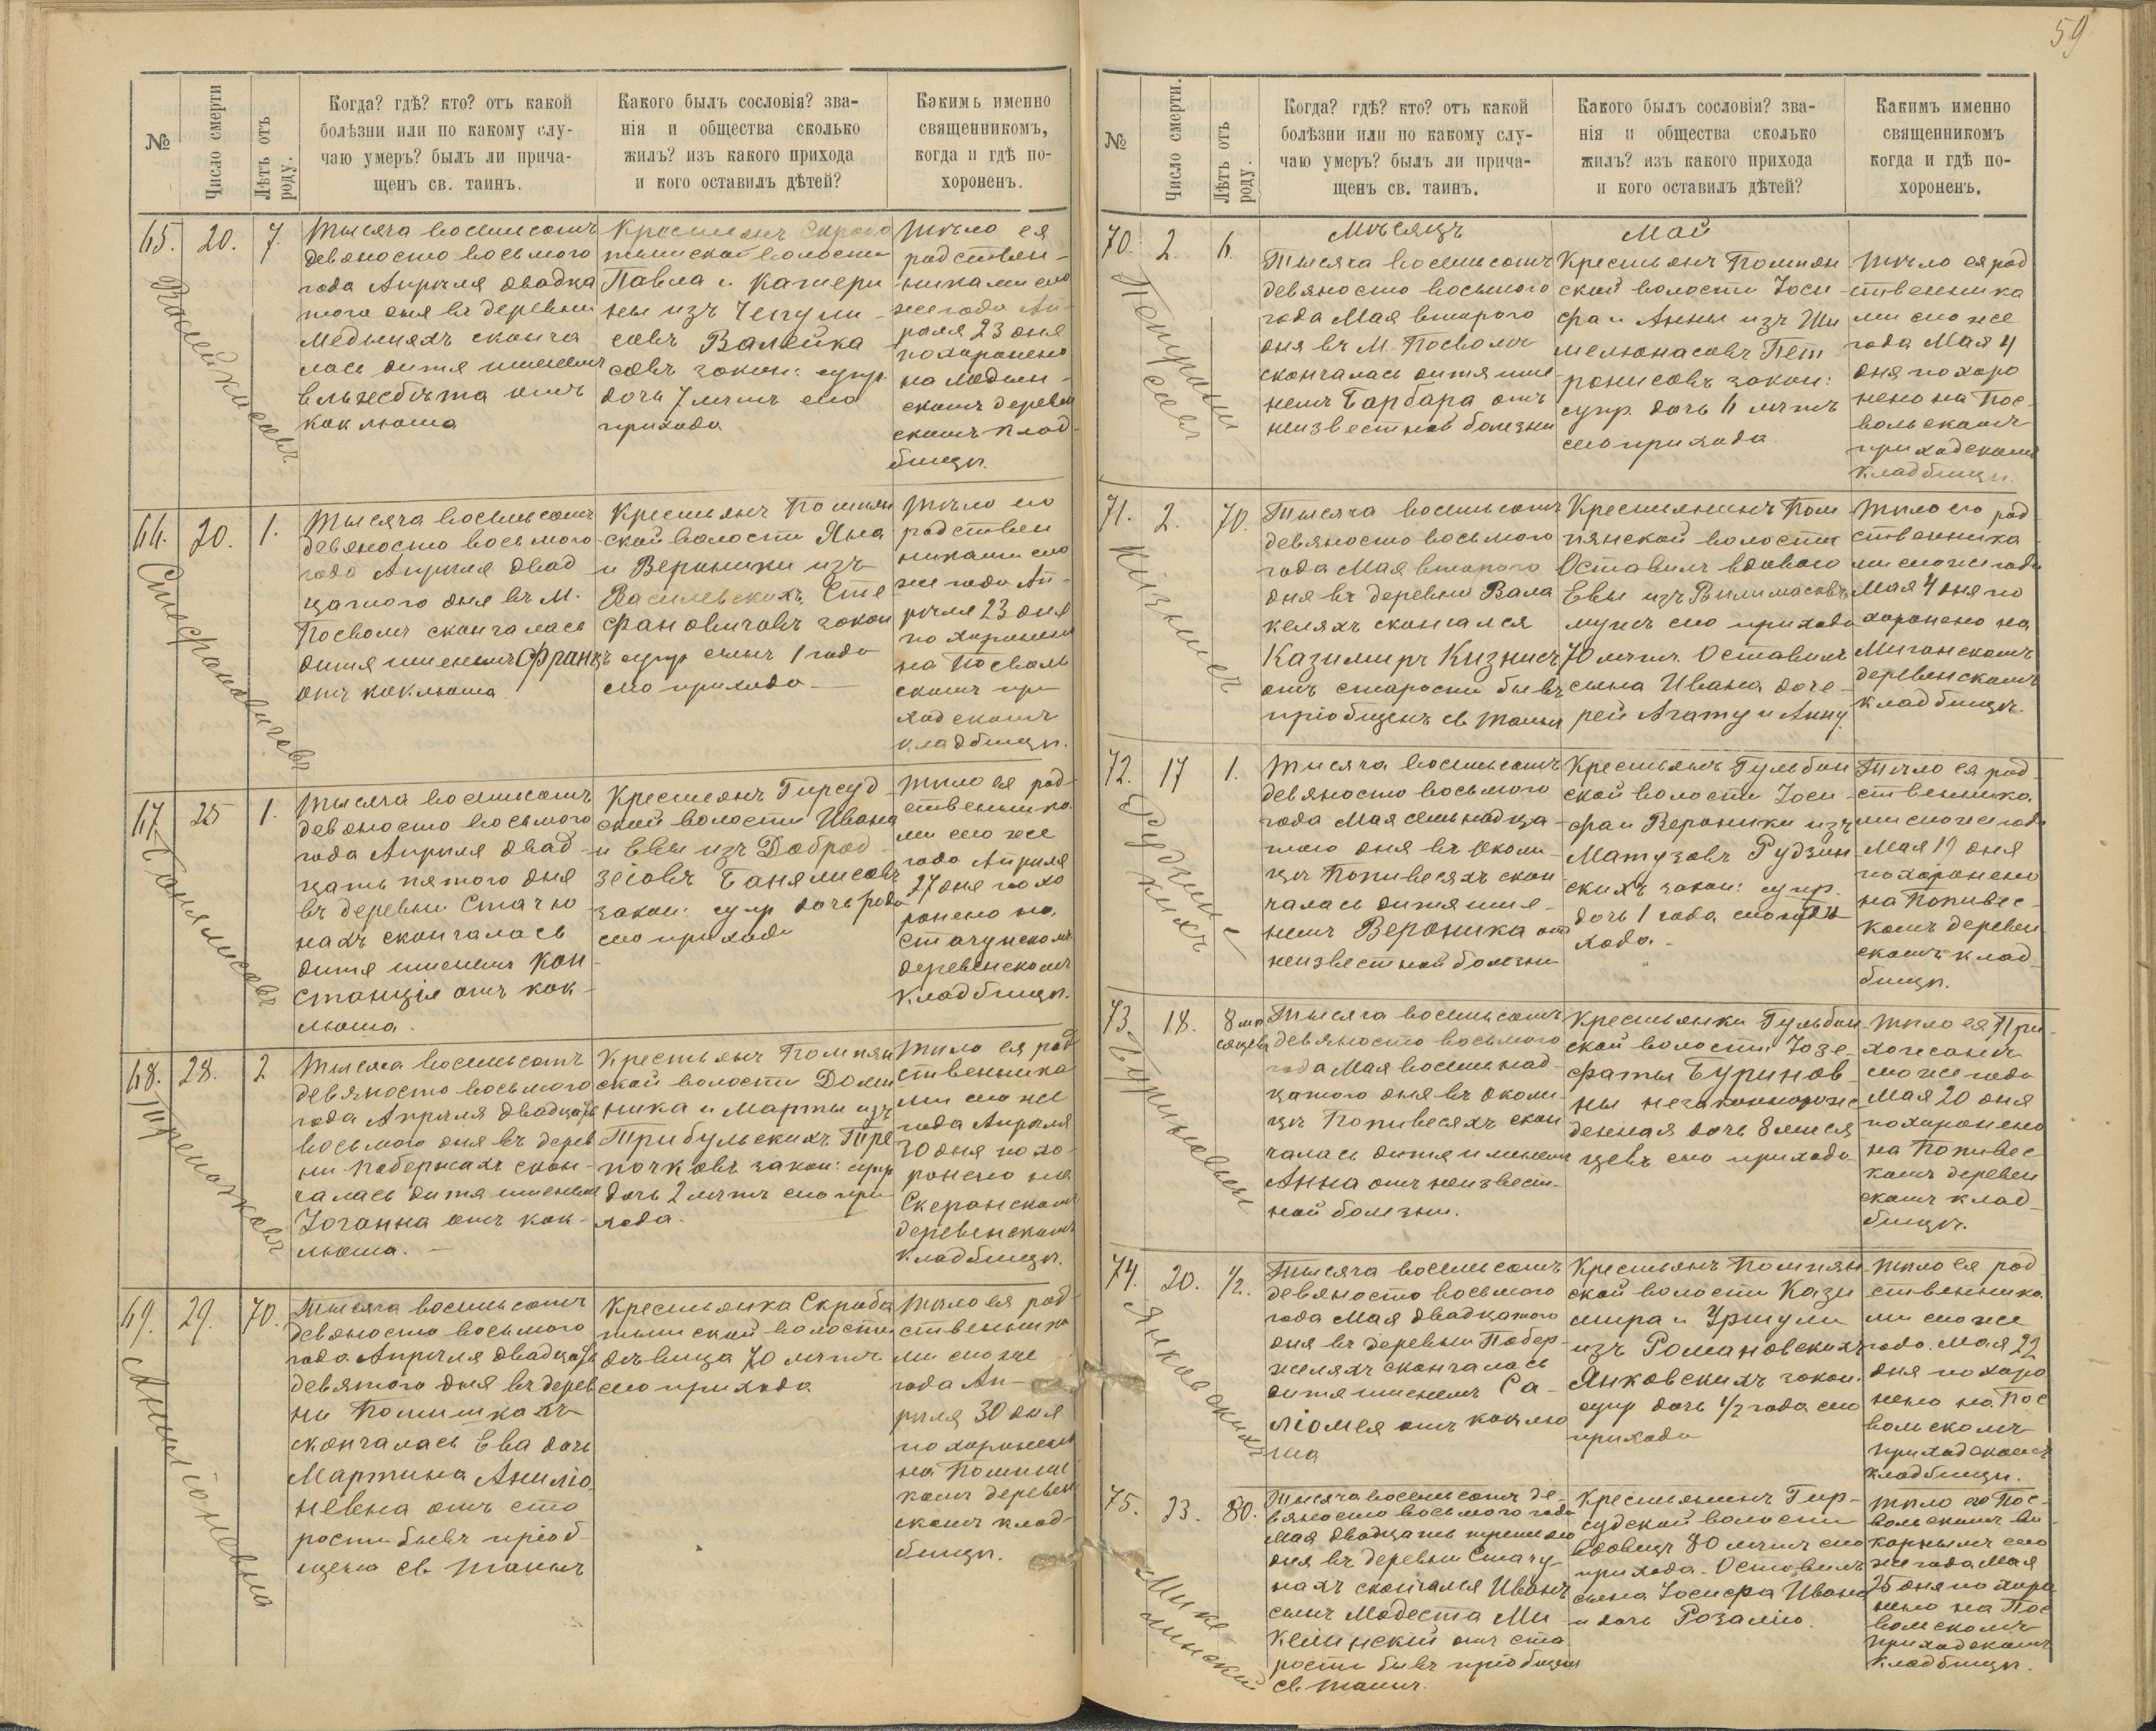 59
№
Число смерти
Лѣтъ отъ роду.
Когда? гдѣ? кто? отъ какой
болѣзни или по какому слу-
чаю умеръ? былъ ли прича-
щенъ св. таинъ.
Какого былъ сословія? зва-
нія и общества сколько
жилъ? изъ какого прихода
и кого оставилъ дѣтей?
Какимъ именно
священникомъ,
когда и гдѣ по-
хороненъ.
65.
20.
7.
Валейкисовъ
Тысяча восемьсотъ
девяносто восьмого
года Апрѣля двадца
того дня въ деревни
Медыняхъ сконча
лась дитя именемъ
Ельжебѣта отъ
коклюша
Крестьянъ Скробо
тышской волости
Павла и Катери
ны изъ Чепули-
совъ Валейки
совъ закон: супр.
дочь 7 лѣтъ сего
прихода
Тѣло ея
родствен-
никами сего
же года Ап-
рѣля 23 дня
похоронено
на Медын-
скомъ деревен
скомъ клад-
бищѣ.
66.
20.
1.
Стефановичовъ
Тысяча восемьсотъ
девяносто восьмого
года Апрѣля двад
цатого дня въ М.
Посволѣ скончалась
дитя именемъ Францъ
отъ коклюша.
Крестьянъ Помпян
ской волости Яна
и Вероники изъ
Василевскихъ Сте
фановичовъ закон
супр сынъ 1 года
сего прихода
Тѣло его
родствен
никами сего
же года Ап-
рѣля 23 дня
похоронено
на Посволь
скомъ при
ходскомъ
кладбищѣ.
67
25
1.
Банялисовъ
Тысяча восемьсотъ
девяносто восьмого
года Апрѣля двад-
цать пятого дня
въ деревни Стачю
нахъ скончалась
дитя именемъ Кон-
станція отъ кок-
люша.
Крестьянъ Гирсуд
ской волости Ивана
и Евы изъ Доброд
зѣіовъ Банялисовъ
закон: супр дочь года
сего прихода
Тѣло ея род-
ственника
ми сего же
года Апрѣля
27 дня похо
ронено на
Стачунскомъ
деревенскомъ
кладбищѣ.
68.
28.
2
Трепочковъ
Тысяча восемьсотъ
девяносто восьмого
года Апрѣля двадцать
восьмого дня въ дерев
ни Побержахъ скон-
чалась дитя именемъ
Іоганна отъ кок-
люша.
Крестьянъ Помпян
ской волости Доми
ника и Марты изъ
Трибульскихъ Тре
почковъ закон: супр
дочь 2 лѣтъ сего при
хода.
Тѣло ея род
ственника
ми сего же
года Апрѣля
30 дня похо-
ронено на
Скеранскомъ
деревенскомъ
кладбищѣ.
69.
29.
70.
Анилёневны
Тысяча восемьсотъ
девяносто восьмого
года Апрѣля двадцать
девятого дня въ дерев
ни Помишкахъ
скончалась Ева дочь
Мартина Аниліо
невна отъ ста
рости бывъ пріоб-
щена св. таинъ
Крестьянка Скроба
тышской волости
дѣвица 70 лѣтъ
сего прихода
Тѣло ея род-
ственника
ми сего же
года Ап-
рѣля 30 дня
похоронено
на Помиш
комъ деревен
скомъ клад-
бищѣ.
№
Число смерти.
Лѣтъ отъ роду.
Когда? гдѣ? кто? отъ какой
болѣзни или по какому слу-
чаю умеръ? былъ ли прича-
щенъ св. таинъ.
Какого былъ сословія? зва-
нія и общества сколько
жилъ? изъ какого прихода
и кого оставилъ дѣтей?
Какимъ именно
священникомъ
когда и гдѣ по-
хороненъ.
Мѣсяцъ Май
70.
2.
6.
Петрони
совъ
Тысяча восемьсотъ
девяносто восьмого
года Мая второго
дня въ М. Посволѣ
скончалась дитя име
немъ Барбара отъ
неизвестной болезни
Крестьянъ Помпян
ской волости Іоси-
фа и Анны изъ Ши
мелюнасовъ Пет
ронисовъ закон:
супр. дочь 6 лѣтъ
сего прихода
Тѣло ея род
ственника
ми сего же
года Мая 4
дня похоро
нено на Пос-
вольскомъ
приходскомъ
кладбищѣ.
71.
2.
70.
Кизнисъ
Тысяча восемьсотъ
девяносто восьмого
года Мая второго
дня въ деревни Вала
келяхъ скончался
Казимиръ Кизнисъ
отъ старости бывъ
пріобщенъ св таинъ
Крестьянинъ Пом
пянской волости
Оставилъ вдового
Евы изъ Вилимасовъ
мужъ сего прихода
70 лѣтъ. Оставилъ
сына Ивана доче-
рей Агату и Анну.
Тѣло его род
ственника
ми сего же года
Мая 4 дня по
хоронено на
Миганскомъ
деревенскомъ
кладбищѣ.
72.
17
1.
Рудзинс
кихъ
Тысяча восемьсотъ
девяносто восьмого
года Мая семьнадца-
того дня въ околи-
цѣ Попивесяхъ скон
чалась дитя име-
немъ Вероника отъ
неизвестной болезни
Крестьянъ Гульбин
ской волости Іоси-
фа и Вероники изъ
Матузовъ Рудзин
скихъ закон: супр.
дочь 1 года сего при
хода.
Тѣло ея род-
ственника
ми сего же года
Мая 19 дня
похоронено
на Попивес-
комъ деревен
скомъ клад-
бищѣ.
73.
18.
8 мѣ
сяцевъ
Буриновны
Тысяча восемьсотъ
девяносто восьмого
года Мая восемьнад
цатого дня въ околи-
цѣ Попивесяхъ скон
чалась дитя именемъ
Анна отъ неизвест-
ной болезни.
Крестьянки Гульбин
ской волости Іозе-
фаты Буринов
ны незаконнорож
денная дочь 8 мѣся
цевъ сего прихода
Тѣло ея При-
хожанъ
сего же года
Мая 20 дня
похоронено
на Попивес
комъ деревен
скомъ клад-
бищѣ.
74.
20.
1/2.
Янковскихъ
Тысяча восемьсотъ
девяносто восьмого
года Мая двадцатого
дня въ деревни Побер-
желяхъ скончалась
дитя именемъ Са-
ліомея отъ коклю
ша
Крестьянъ Помпян
ской волости Кази
мира и Уршули
изъ Романовскихъ
Янковскихъ закон.
супр дочь 1/2 года сего
прихода
Тѣло ея род
ственника
ми сего же
года. Мая 22
дня похоро
нено на Пос
вольскомъ
приходскомъ
кладбищѣ.
75.
23.
80.
Мике
линскій
Тысяча восемьсотъ де-
вяносто восьмого года
Мая двадцать третьяго
дня въ деревни Стачу-
нахъ скончался Иванъ
сынъ Модеста Ми
келинскій отъ ста
рости бывъ пріобщенъ
св. таинъ.
Крестьянинъ Гир-
судской волости
вдовецъ 80 лѣтъ сего
прихода. Оставилъ
сына Іосифа Ивана
и дочь Розалію.
Тѣло его Пос-
вольскимъ Ви
карнымъ сего
же года Мая
25 дня похоро
нено на Пос
вольскомъ
приходскомъ
кладбищѣ.